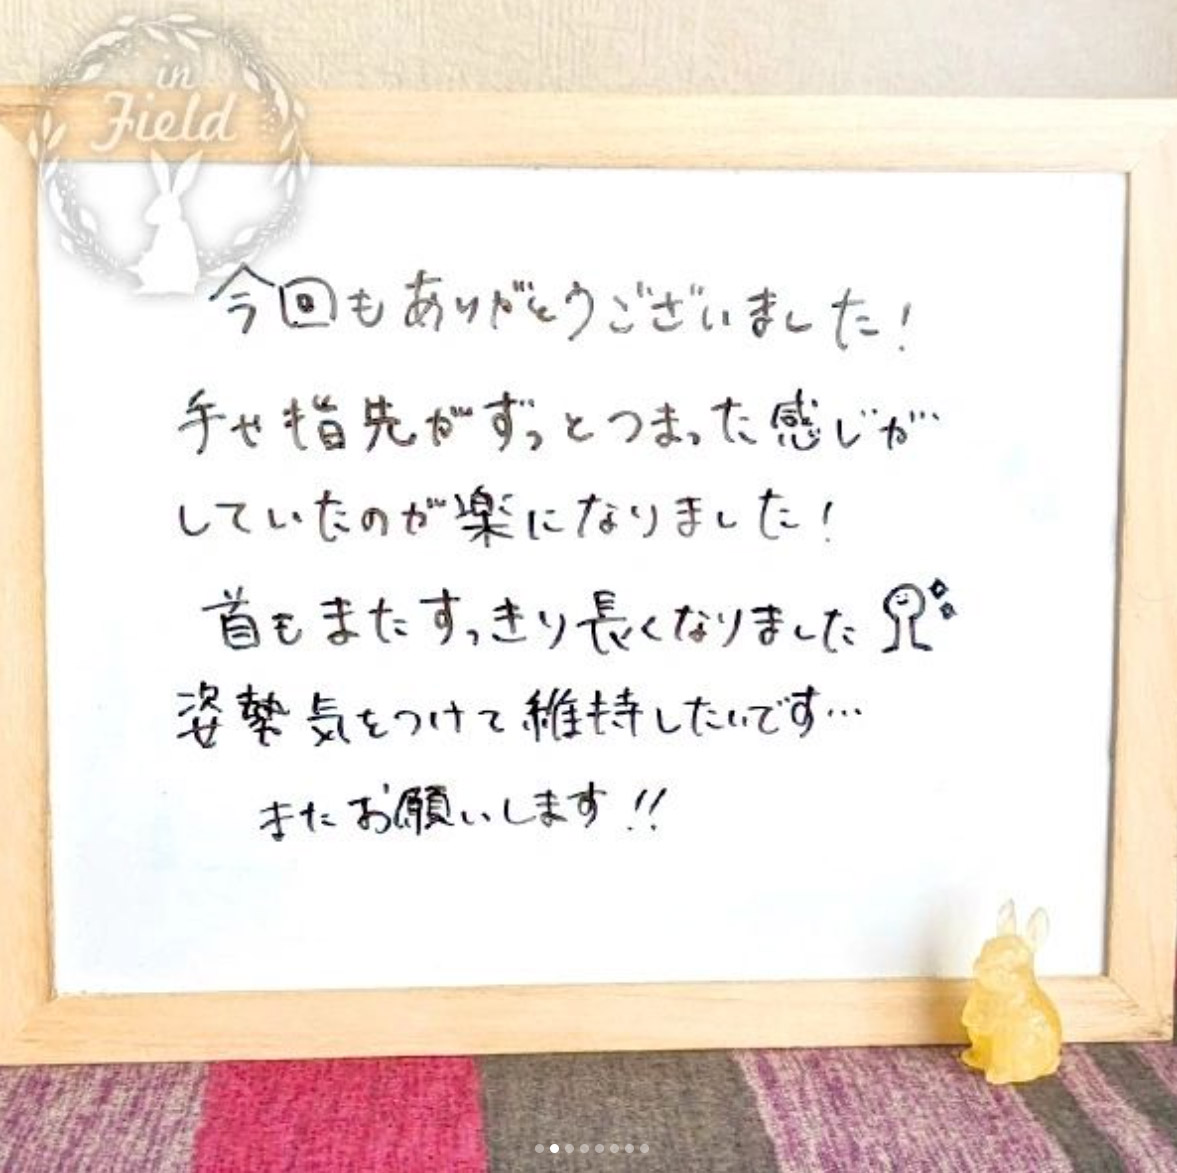 in
Field
今回もありがとうございました!
手や指先がずっとつまった感じが
していたのが楽になりました!
首もまたすっきり長くなりました
姿勢気をつけて維持したいです…
またお願いします!!